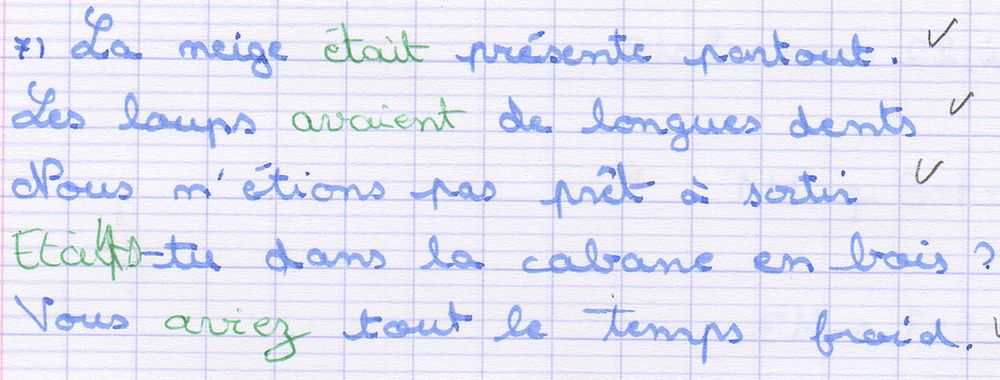 7) La neige était présente partout.
Les loups avaient de longues dents
Nous n'étions pas prêt à sortir
Etais-tu dans la cabane en bois ?
Vous aviez tout le temps froid.